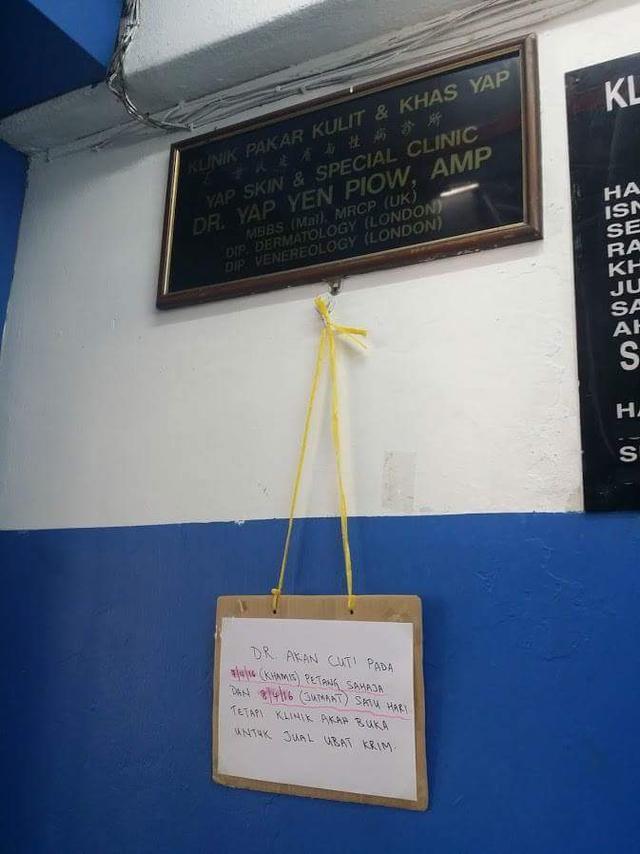 KLINIK PAKAR KULIT & KHAS YAP
YAP SKIN & SPECIAL CLINIC
DR. YAP YEN PIOW, AMP
MBBS (Mal), MRCP (UK)
DIP. DERMATOLOGY (LONDON)
DIP. VENEREOLOGY (LONDON)
KL
HA
ISN
SE
RA
KH
JU
SA
AH
S
HA
S
DR. AKAN CUTI PADA
7/4/16 (KHAMIS) PETANG SAHAJA
DAN 8/4/16 (JUMAAT) SATU HARI
TETAPI KLINIK AKAN BUKA
UNTUK JUAL UBAT KRIM.